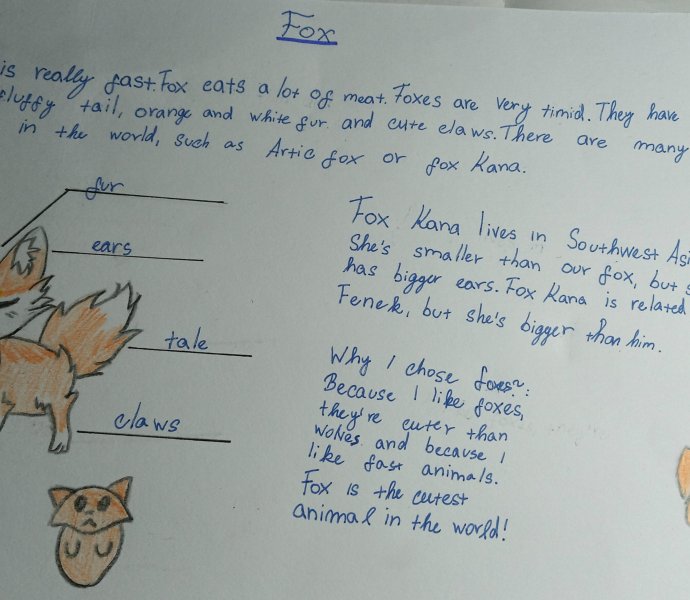 Fox
is really fast. Fox eats a lot of meat. Foxes are very timid. They have
fluffy tail, orange and white fur and cute claws. There are many
in the world, such as Artic fox or fox Kana.
fur
ears
tale
claws
Fox Kana lives in Southwest Asi
She's smaller than our fox, but s
has bigger ears. Fox Kana is related
Fenek, but she's bigger than him.
Why I chose foxes?:
Because I like foxes,
they're cuter than
wolves and because I
like fast animals.
Fox is the cutest
animal in the world!